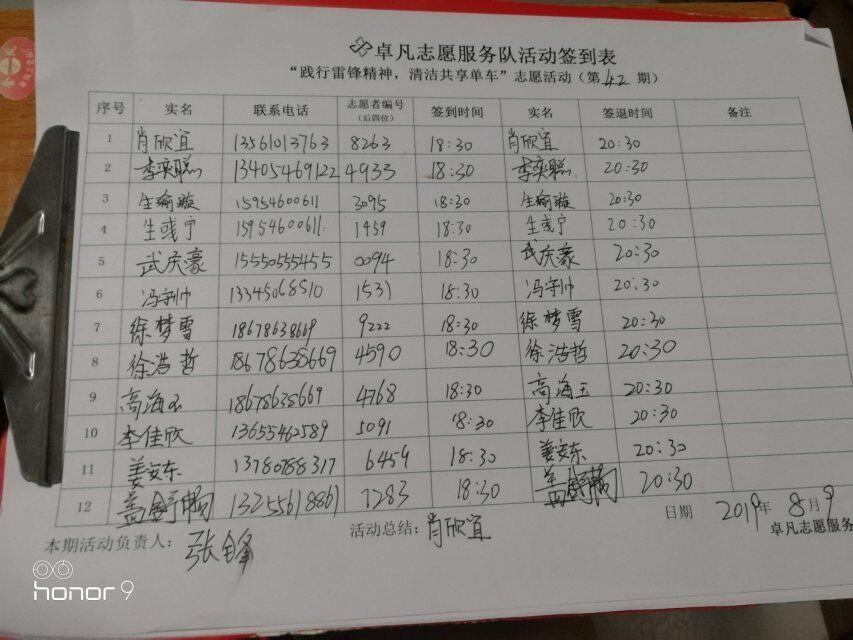 卓凡志愿服务队活动签到表
“践行雷锋精神，清洁共享单车”志愿活动（第42期）
序号 实名 联系电话 志愿者编号（后四位） 签到时间 实名 签退时间 备注
1 肖欣宜 13561013763 8263 18:30 肖欣宜 20:30
2 李奕聪 13405469122 4933 18:30 李奕聪 20:30
3 生瑜璇 15954600611 3095 18:30 生瑜璇 20:30
4 生彧宁 15954600611 1459 18:30 生彧宁 20:30
5 武庆豪 15550555455 0094 18:30 武庆豪 20:30
6 冯守帅 13345068510 1531 18:30 冯守帅 20:30
7 徐梦雪 18678638669 9222 18:30 徐梦雪 20:30
8 徐浩哲 18678638669 4590 18:30 徐浩哲 20:30
9 高海玉 18678638669 4768 18:30 高海玉 20:30
10 李佳欣 13655462589 5091 18:30 李佳欣 20:30
11 姜安东 13780788317 6459 18:30 姜安东 20:30
12 盖舒畅 13255618861 7283 18:30 盖舒畅 20:30
本期活动负责人：张锋 活动总结：肖欣宜 日期 2019年8月9
卓凡志愿服务
honor 9